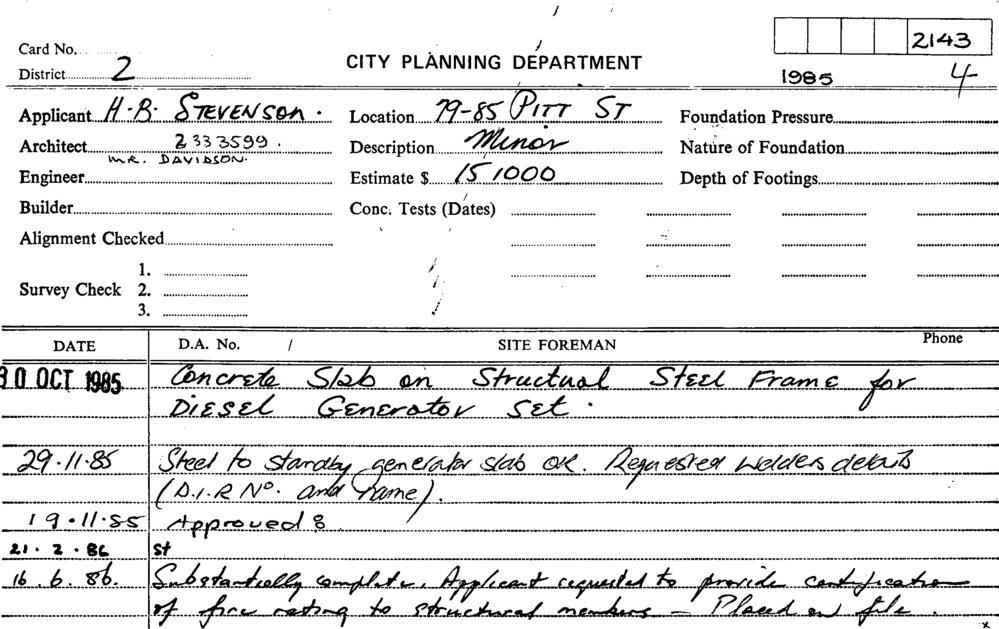 2143
Card No.
District 2
CITY PLANNING DEPARTMENT
1985 4
Applicant H.B. STEVENSON.
Location 79-85 PITT ST
Foundation Pressure
Architect 2333599.
MR. DAVIDSON.
Description Minor
Nature of Foundation
Engineer
Estimate $ 151000
Depth of Footings
Builder
Conc. Tests (Dates)
Alignment Checked
1.
Survey Check 2.
3.
DATE D.A. No. / SITE FOREMAN Phone
30 OCT 1985 Concrete Slab on Structual Steel Frame for
Diesel Generator Set.
29.11.85 Steel to standby generator slab OK. Requested welders details
(D.I.R No. and name).
19.11.85 Approved 8
21.2.86 st
16.6.86. Substantially complete. Applicant requested to provide certification
of fire rating to structural members — Placed on file.
x